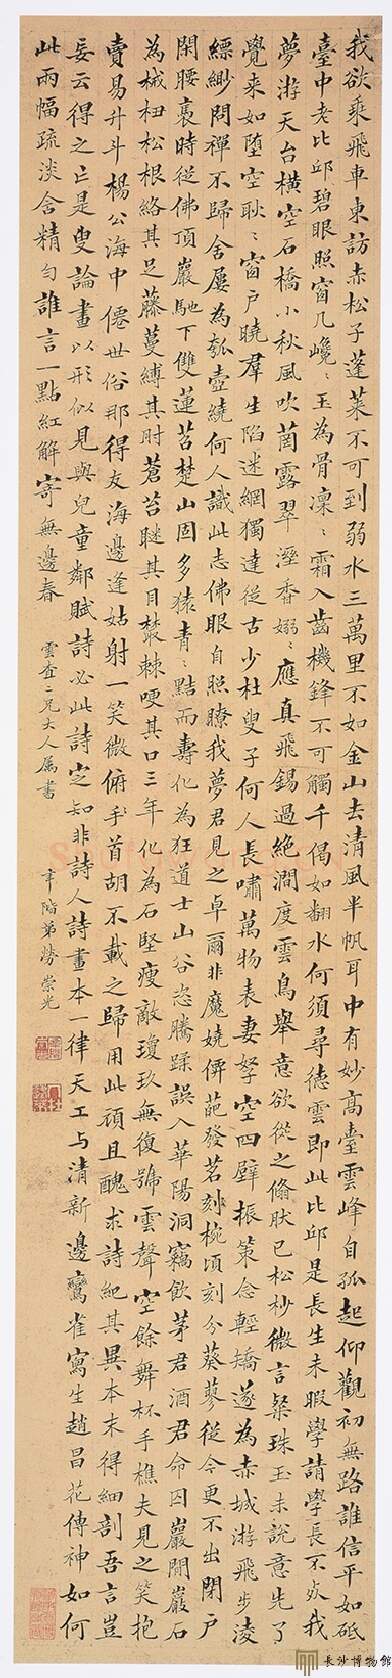 我欲乘飛車東訪赤松子蓬萊不可到弱水三萬里不如金山去清風半帆耳中有妙高臺雲峰自孤起仰觀初無路誰信平如砥
臺中老比邱碧眼照窗几巉〻玉為骨凜〻霜入齒機鋒不可觸千偈如翻水何須尋德雲即此比邱是長生未暇學請學長不死我
夢游天台橫空石橋小秋風吹菌露翠溼香嫋〻應真飛錫過絕澗度雲鳥舉意欲從之翛肰已松杪微言粲珠玉未說意先了
覺来如墮空耿〻窗戶曉羣生陷迷網獨達從古少杜叟子何人長嘯萬物表妻孥空四壁振策念輕矯遂為赤城游飛步淩
縹緲問禪不歸舍屢為瓠壺繞何人識此志佛眼自照瞭我夢君見之卓爾非魔嬈葩發茗刻椀頃刻分葵蓼從今更不出閉戶
閑腰裊時從佛頂巖馳下雙蓮沼楚山固多猿青〻黠而壽化為狂道士山谷恣騰蹂誤入華陽洞竊飲茅君酒君命囚巖間巖石
為械杻松根絡其足藤蔓縛其肘蒼苔眯其目叢棘哽其口三年化為石堅瘦敵瓊玖無復號雲聲空餘舞杯手樵夫見之笑抱
賣易升斗楊公海中僊世俗那得友海邊逢姑射一笑微俯手首胡不載之歸用此頑且醜求詩紀其異本末得細剖吾言豈
妄云得之亡是叟論畫以形似見與兒童鄰賦詩必此詩定知非詩人詩畫本一律天工与清新邊鸞雀寫生趙昌花傳神如何
此兩幅疏淡含精勻誰言一點紅解寄無邊春
雲查二兄大人屬書
辛階弟勞崇光
長沙博物館